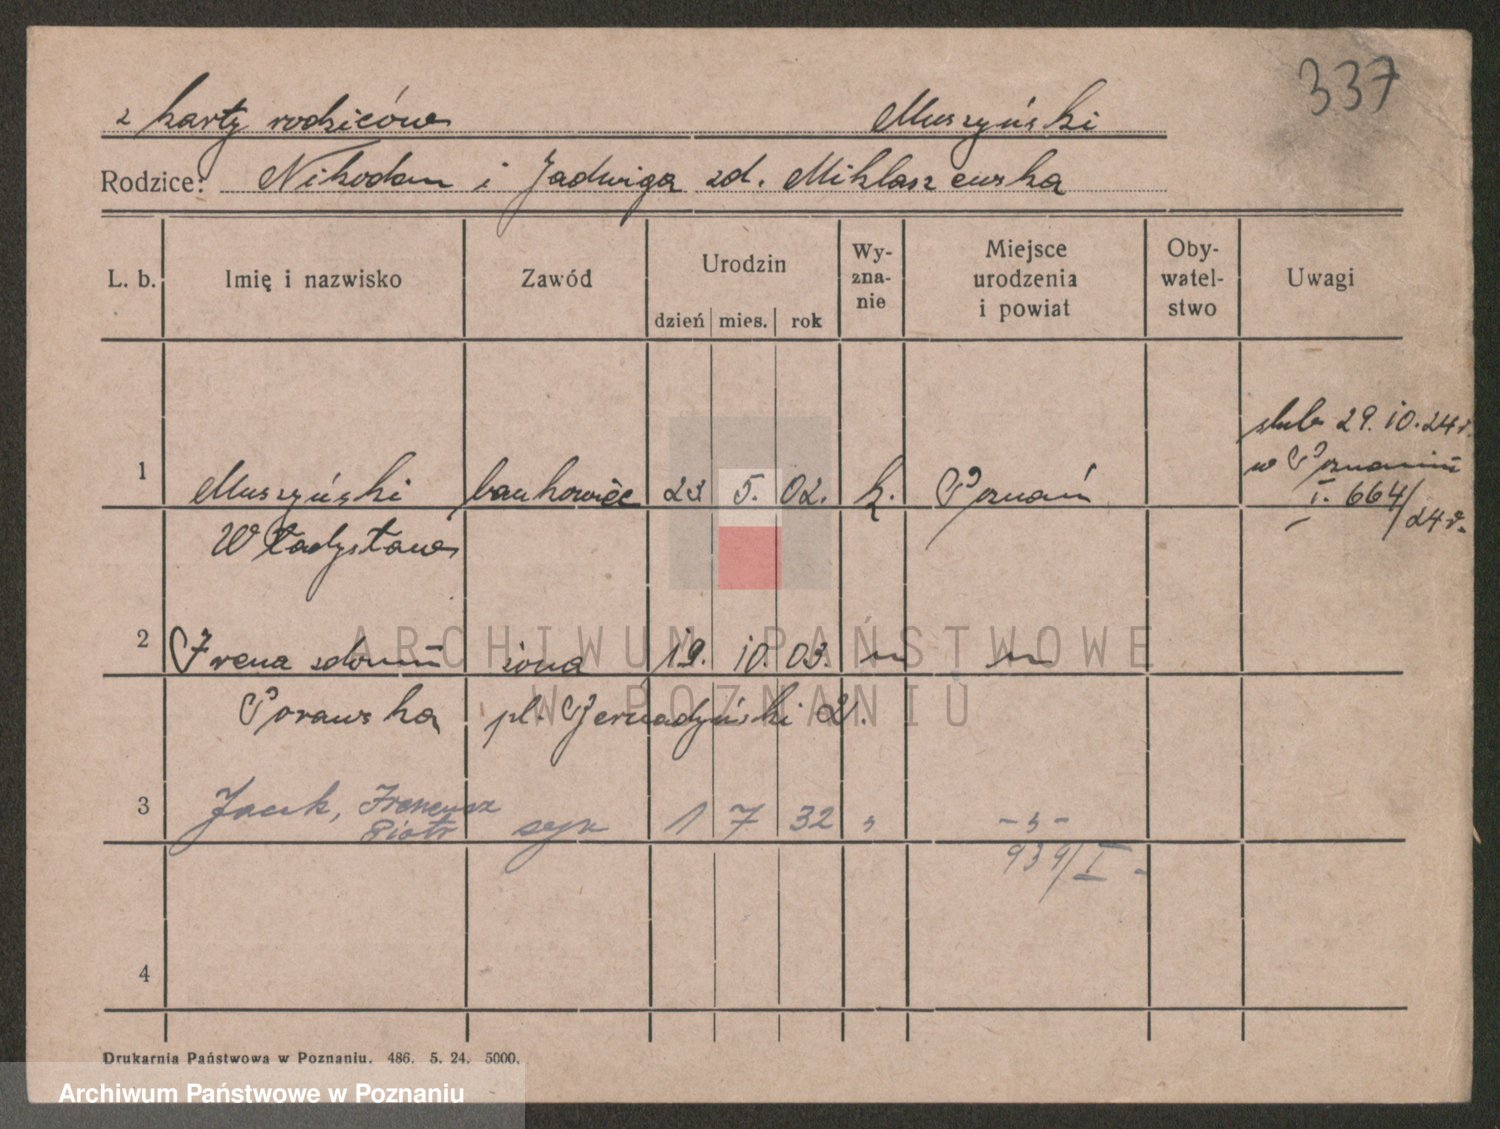 337
z karty rodziców Muszyński
Rodzice: Nikodem i Jadwiga zd. Miklaszewska
L. b. Imię i nazwisko Zawód Urodzin dzień mies. rok Wy-zna-nie Miejsce urodzenia i powiat Oby-watel-stwo Uwagi
ślub 29.10.24 r.
w Poznaniu
1 Muszyński bankowiec 23 5. 02. k. Poznań I. 664/24 r.
Władysław
2 Irena z domu żona 19. 10. 03. " "
Porawska pl.
3 Jacek, Ireneusz syn 1 7 32 " - " -
Piotr
939/I -
4
Drukarnia Państwowa w Poznaniu. 486. 5. 24. 5000.
ARCHIWUM PAŃSTWOWE
W POZNANIU
Archiwum Państwowe w Poznaniu